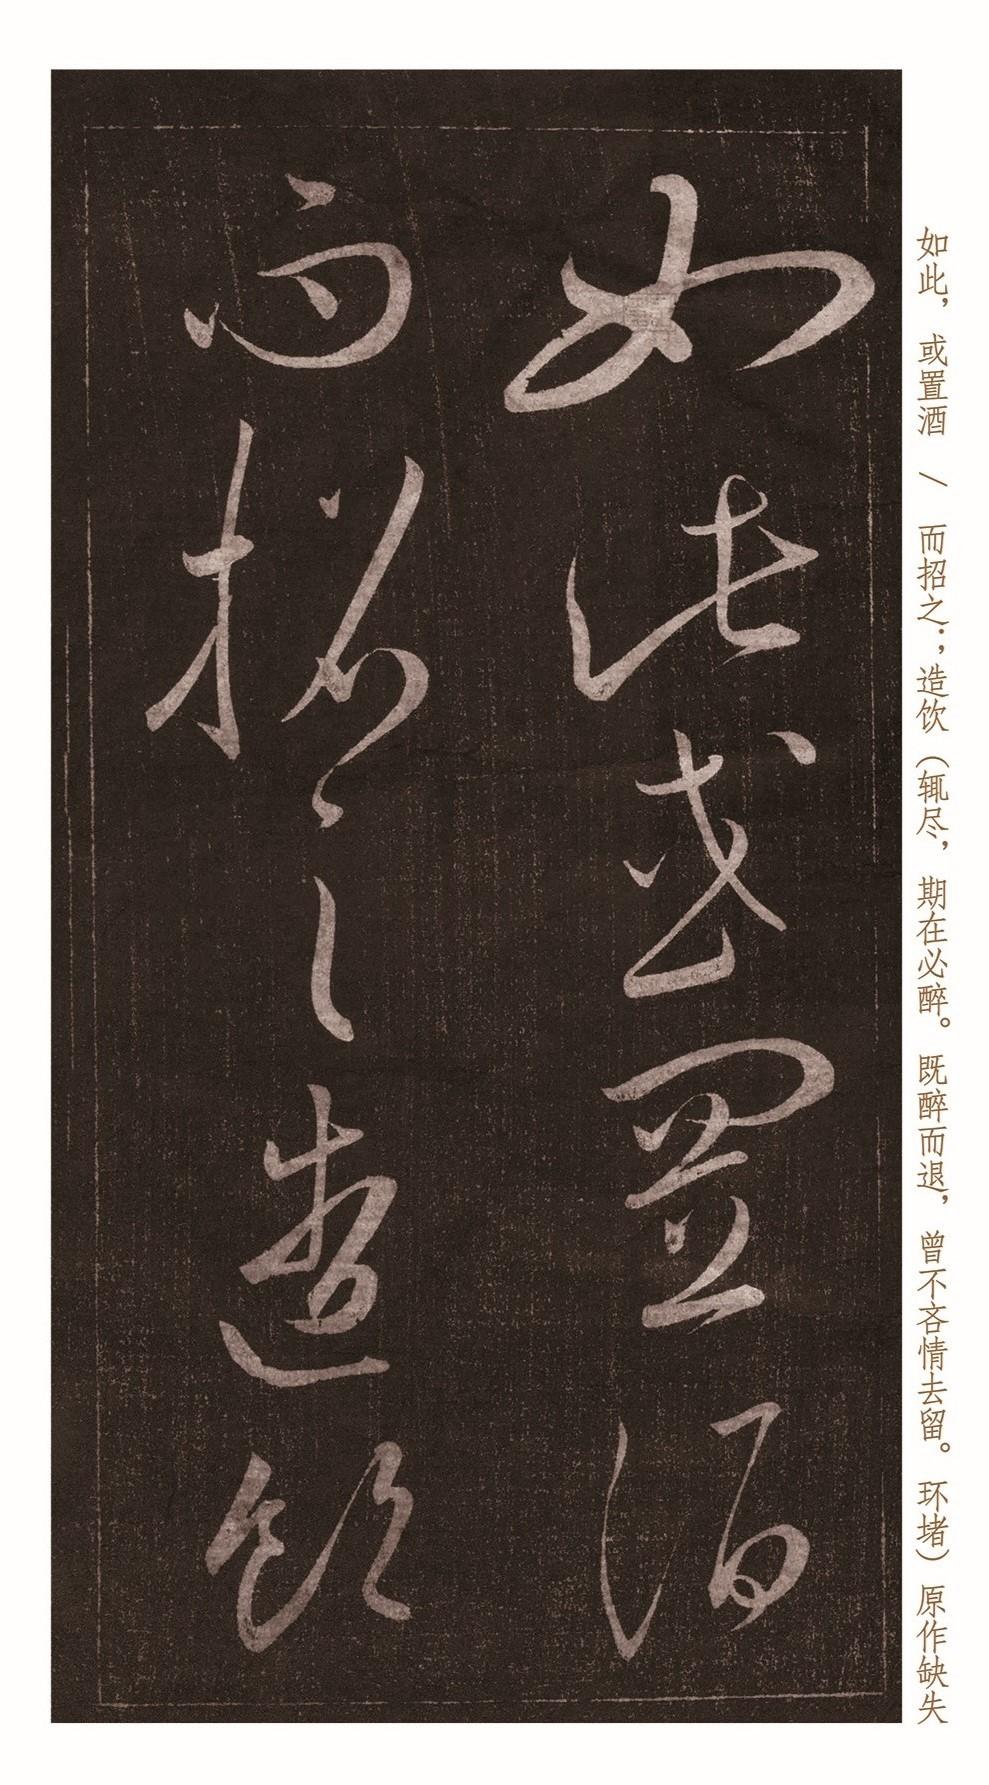 如此或置酒
而招之造饮
如此，或置酒 / 而招之；造饮（辄尽，期在必醉。既醉而退，曾不吝情去留。环堵）原作缺失